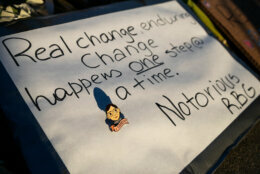 Real change, enduring
Change
happens one step @
a time.
Notorious
RBG